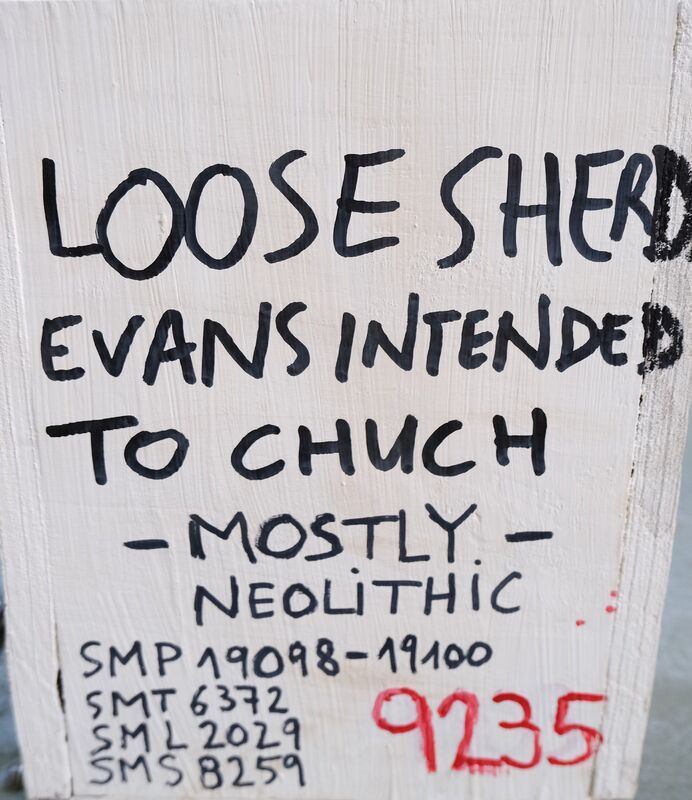 LOOSE SHERD
EVANS INTENDED
TO CHUCH
- MOSTLY -
NEOLITHIC
SMP 19098-19100
SMT 6372
SML 2029
SMS 8259
9235